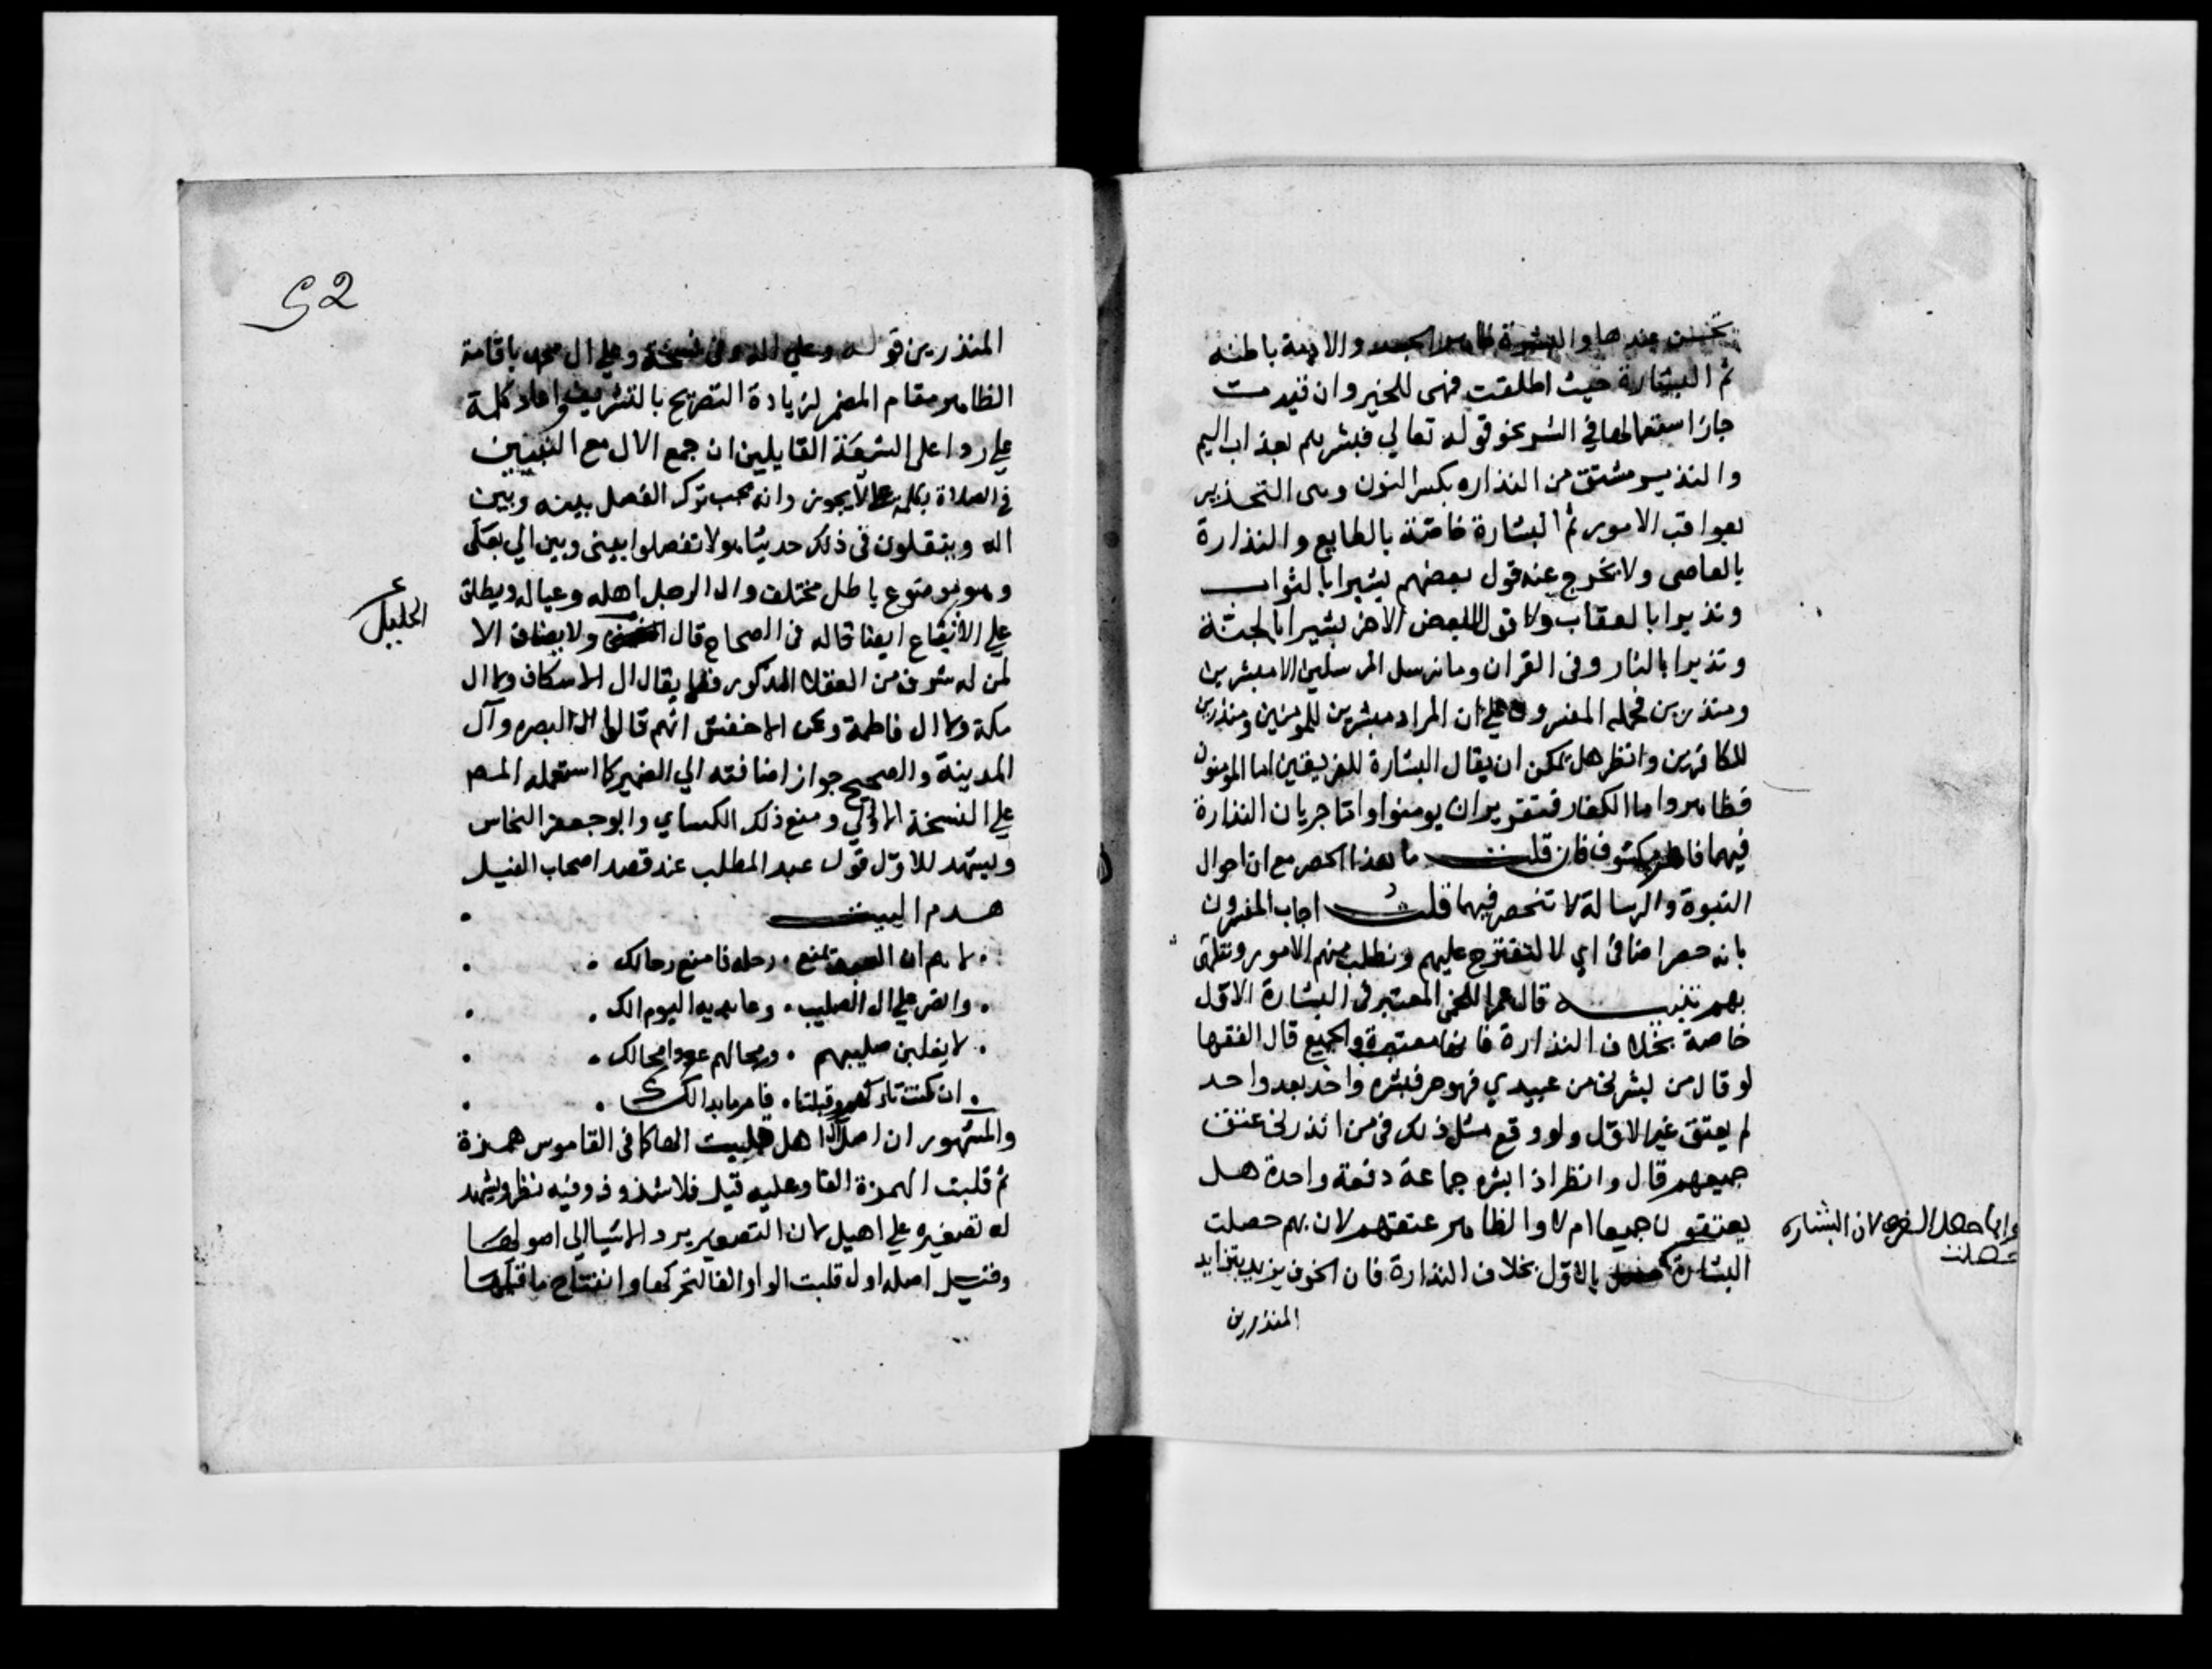 تحسن عندها والبشرة ظاهر الجلد والادمة باطنه
ثم البشارة حيث اطلقت فهى للخير وان قيدت
جاز استعمالها في الشر نحو قوله تعالي فبشرهم بعذاب اليم
والنذير مشتق من النذاره بكسر النون وهى التحذير
بعواقب الامور ثم البشارة خاصة بالطايع والنذارة
بالعاصى ولا يخرج عنه قول بعضهم بشيرا بالثواب
ونذيرا بالعقاب ولا قول البعض الاخر بشيرا بالجنة
ونذيرا بالنار وفى القران وما نرسل المرسلين الا مبشرين
ومنذرين فحمله المفسرون على ان المراد مبشرين للمومنين ومنذرين
للكافرين وانظر هل يمكن ان يقال البشارة للفريقين اما المومنون
فظاهر واما الكفار فبتقدير ان يومنوا واما جريان النذارة
فيهما فامر مكشوف فان قلت ما هذا الحصر مع ان احوال
النبوة والرسالة لا تنحصر فيهما قلت اجاب المفسرون
بانه حصر اضافى اي لا لتقترح عليهم ونطلب منهم الامور ونتلهى
بهم تنبيه قال اللخمى المعتبر فى البشارة الاول
خاصة بخلاف النذارة فانها معتبرة والجميع قال الفقها
لو قال من بشرنى من عبيدي فهو حر فبشره واحد بعد واحد
لم يعتق غير الاول ولو وقع مثل ذلك فى من انذرنى عتق
جميعهم قال وانظر اذا بشره جماعة دفعة واحدة هل
يعتقون جميعا ام لا والظاهر عتقهم لان بهم حصلت
البشارة بالاول بخلاف النذارة فان الخوف يزيد بتزايد
لان البشاره
حصلت
المنذرين
52
المنذرين قوله وعلي اله وفى نسخة وعلي ال محمد باقامة
الظاهر مقام المضمر لزيادة التصريح بالتشريف واعاد كلمة
علي ردا على الشيعة القايلين ان جمع الال مع النبيين
في الصلاة بكلمة علي لا يجوز وانه يجب ترك الفصل بينه وبين
اله وينقلون في ذلك حديثا هو لا تفصلوا بينى وبين الي بعلى
وهو موضوع باطل مختلف وال الرجل اهله وعياله ويطلق
علي الاتباع ايضا قاله في الصحاح قال ولا يضاف الا
الخليل
لمن له شرف من العقلا المذكور فلا يقال ال الاسكاف ولا ال
مكة ولا ال فاطمة وعن الاخفش انهم قالوا ال البصره وآل
المدينة والصحيح جواز اضافته الي الضمير كما استعمله المص
علي النسخة الاولي ومنع ذلك الكساي وابو جعفر النحاس
ويشهد للاول قول عبد المطلب عند قصد اصحاب الفيل
هدم البيت
لاهم ان المرء يمنع . رحله فامنع رحالك
وانصر علي ال الصليب . وعابديه اليوم الك
لا يغلبن صليبهم . ومحالهم عدوا محالك
ان كنت تاركهم وقبلتنا . فامر ما بدا لك
والمشهور ان اصل ال اهل قلبت الها كما فى القاموس همزة
ثم قلبت الهمزة الفا وعليه قيل فلا شذوذ وفيه نظر ويشهد
له تصغيره علي اهيل لان التصغير يرد الاشيا الي اصولها
وقيل اصله اول قلبت الواو الفا لتحركها وانفتاح ما قبلها